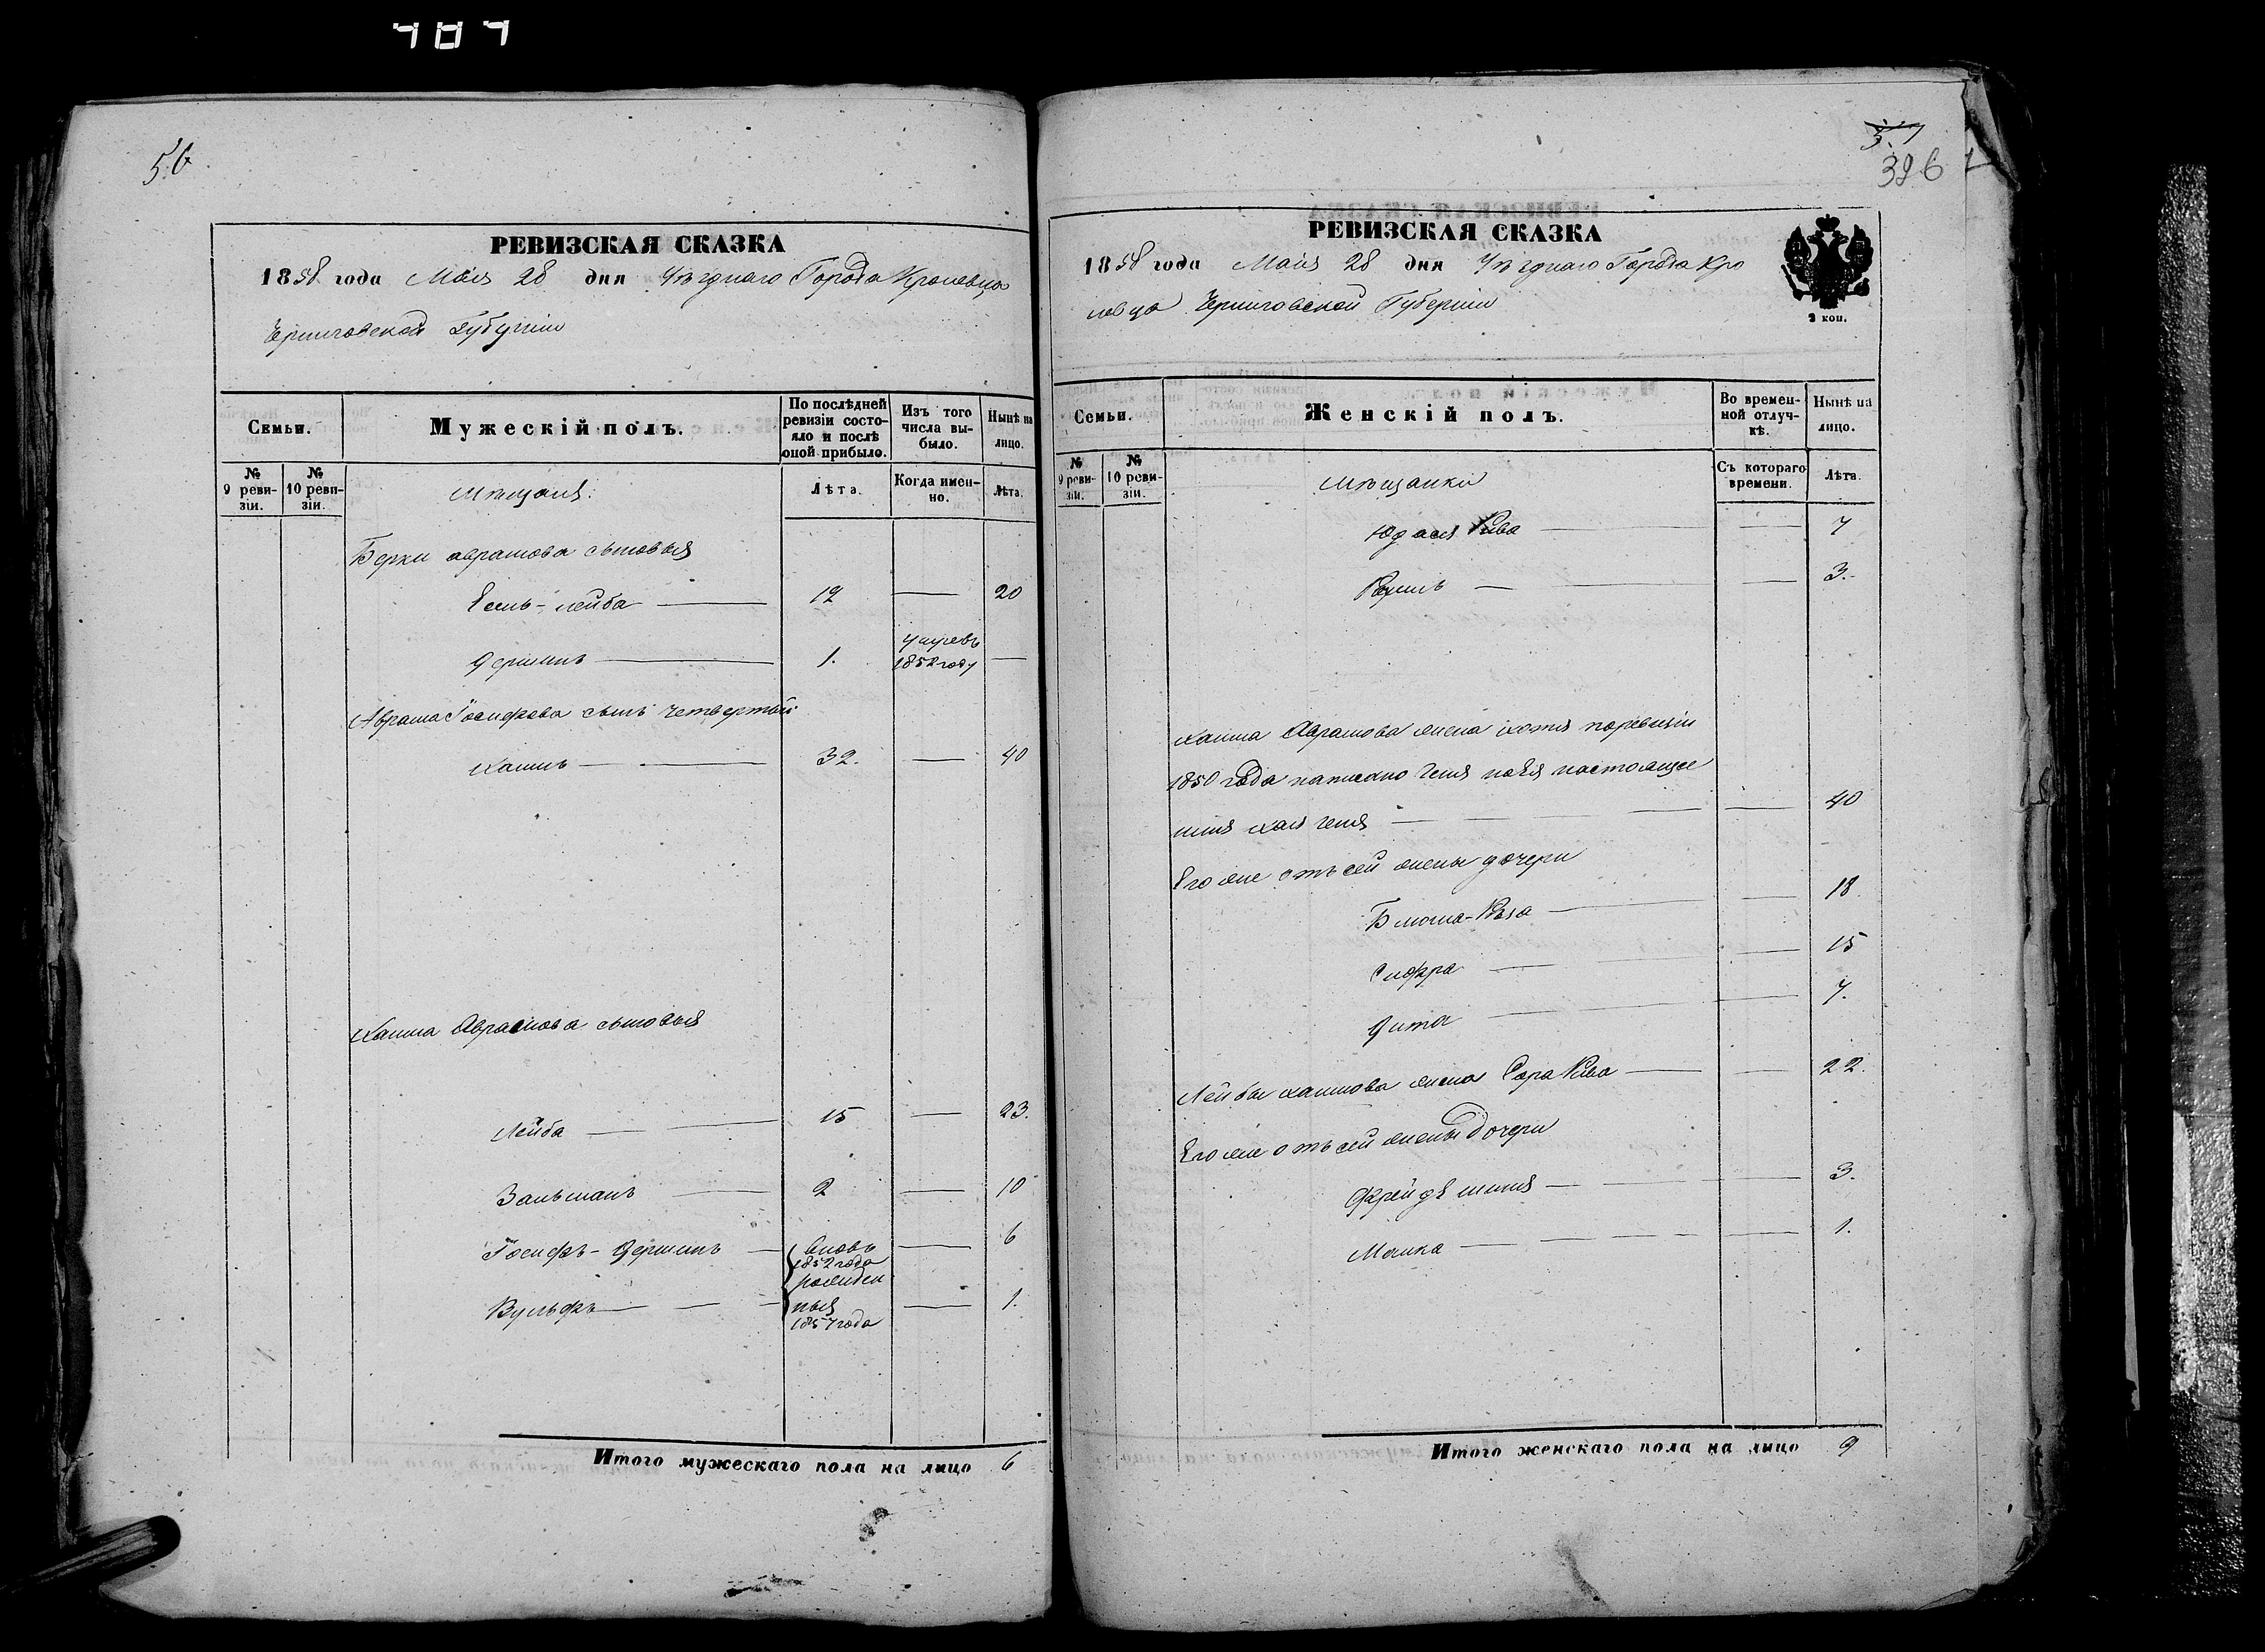 787
56
РЕВИЗСКАЯ СКАЗКА
1858 года Маія 28 дня Уѣзднаго Города Кролевца
Черниговской Губерніи
Семьи.
Мужескій полъ.
По послѣдней ревизіи состояло и послѣ оной прибыло.
Изъ того числа выбыло.
Нынѣ на лицо.
№ 9 ревизіи.
№ 10 ревизіи.
Мѣщаня.
Лѣта.
Когда именно.
Лѣта.
Берки Аврамова сыновья
Есель-Лейба 12 20
1. умревъ 1852 году
Абрама Іосифова сынъ четвертый
Хаимъ 32. 40
Хаима Аврамова сыновья
Лейба 15 23.
Зальманъ 2 10
Іосифъ- 6
Вновь
1852 года
рожден
Вульфъ ныя 1.
1857 года
Итого мужескаго пола на лицо 6
57
396
РЕВИЗСКАЯ СКАЗКА
1858 года Маія 28 дня Уѣзднаго Города Кро
левца Черниговской Губерніи
2 коп.
Семьи.
Женскій полъ.
Во временной отлучкѣ.
Нынѣ на лицо.
№ 9 ревизіи.
№ 10 ревизіи.
Мѣщанки
Съ котораго времени.
Лѣта.
Юдася Рива 7
3.
Хаима Аврамова жена хотя поревизіи
1850 года написано Геня ноея настоящее
имя Хая Геня 40
Его же отъ сей жены дочери
Блюма- 18
Сифра 15
7.
Лейбы Хаимова жена Сора Рива 22.
Его же отъ сей жены дочери
3.
Малка 1.
Итого женскаго пола на лицо 9